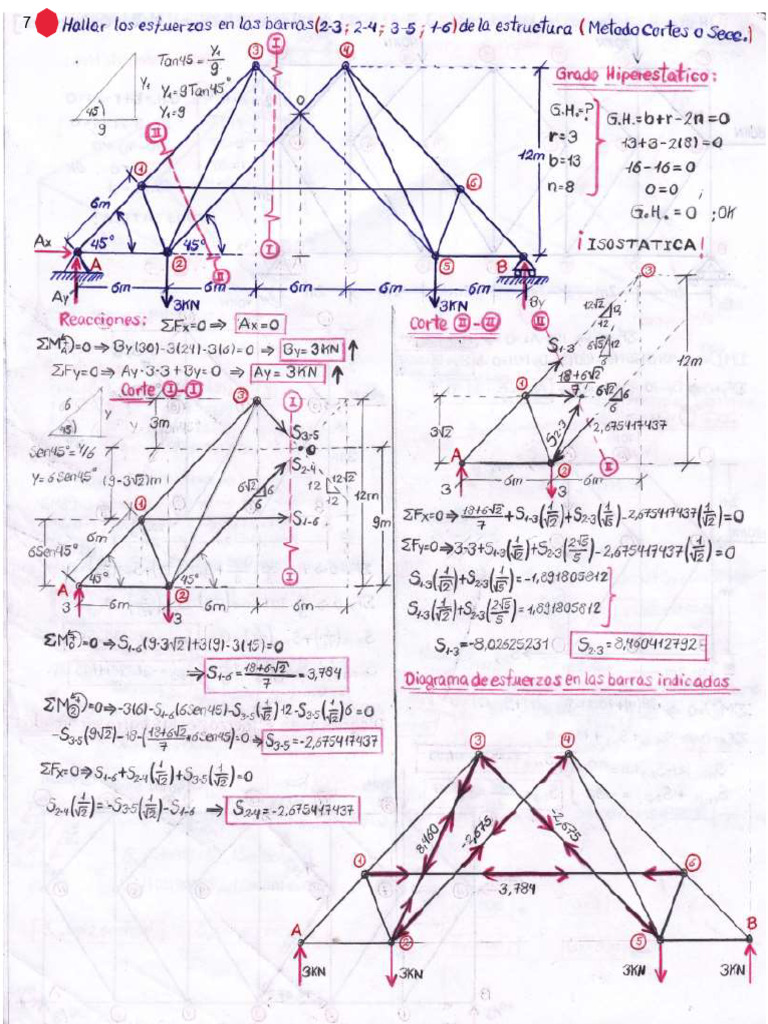 7 Hallar los esfuerzos en las barras (2-3; 2-4; 3-5; 1-6) de la estructura (Metodo Cortes o Secc.)
Tan45 = Y₁/9
Y₁ = 9 Tan45°
Y₁ = 9
45°
Y₁
9
3
4
I
O
II
1
6
6m
12m
Ax
45°
A
2
45°
II
I
5
B
Ay
By
6m 6m 6m 6m 6m
3KN
3KN
Grado Hiperestatico:
G.H.=?
r=3
b=13
n=8
G.H.=b+r-2n=0
13+3-2(8)=0
16-16=0
0=0
G.H.=0 ; OK
¡ISOSTATICA!
Reacciones: ΣFx=0 ⇒ Ax=0
ΣM₂)=0 ⇒ By(30)-3(24)-3(6)=0 ⇒ By=3KN ↑
ΣFy=0 ⇒ Ay-3-3+By=0 ⇒ Ay=3KN ↑
Corte I-I
6
Y
45°
Sen45°=Y/6
Y=6Sen45°
3m
(9-3√2)m
3
I
S₃₋₅
O
S₂₋₄
6√2 6
6
12√2
12
12
12m
9m
1
S₁₋₆
6Sen45°
6m
A
45°
2
45°
I
3
3
6m 6m 6m 6m
ΣM₀)=0 ⇒ S₁₋₆(9-3√2)+3(9)-3(15)=0
⇒ S₁₋₆ = 18+6√2/7 = 3,784
ΣM₂)=0 ⇒ -3(6)-S₁₋₆(6Sen45)-S₃₋₅(1/√2)12-S₃₋₅(1/√2)6=0
-S₃₋₅(9√2)-18-(18+6√2/7 · 6Sen45)=0 ⇒ S₃₋₅=-2,675417437
ΣFx=0 ⇒ S₁₋₆+S₂₋₄(1/√2)+S₃₋₅(1/√2)=0
S₂₋₄(1/√2)=-S₃₋₅(1/√2)-S₁₋₆ ⇒ S₂₋₄=-2,675417437
Corte II-II
3
II
12√2
12
12
S₁₋₃
6√5 12
6
18+6√2/7
6√2 6
6
12m
1
S₂₋₃
2,675417437
3√2
A
2
II
3
3
6m 6m 6m
ΣFx=0 ⇒ 18+6√2/7 + S₁₋₃(1/√2)+S₂₋₃(√5/5)-2,675417437(1/√2)=0
ΣFy=0 ⇒ 3-3+S₁₋₃(1/√2)+S₂₋₃(2√5/5)-2,675417437(1/√2)=0
S₁₋₃(1/√2)+S₂₋₃(√5/5)=-1,891805812
S₁₋₃(1/√2)+S₂₋₃(2√5/5)=1,891805812
S₁₋₃=-8,02625231 S₂₋₃=8,460412792
Diagrama de esfuerzos en las barras indicadas
3
4
8,460
-2,675
-2,675
1
6
3,784
A
2
5
B
3KN 3KN 3KN 3KN